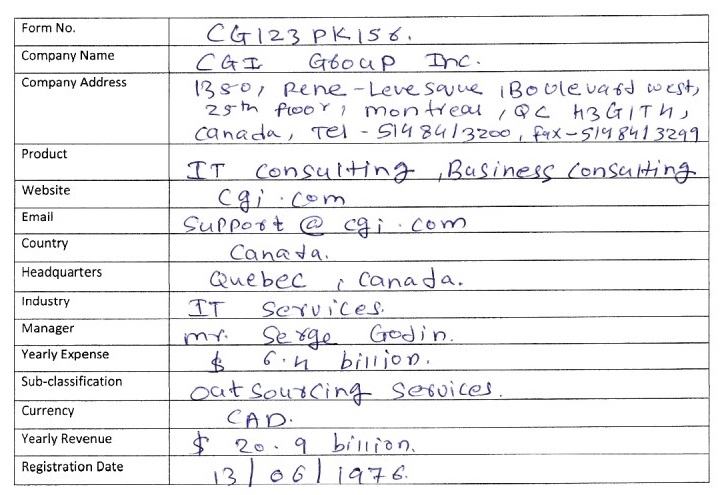 Form No. CG123PK156.
Company Name CGI Group Inc.
Company Address 1350, Rene-Levesque, Boulevard west,
25th floor, montreal, QC H3G1T4,
Canada, Tel - 5148413200, fax-5148413299
Product IT Consulting, Business Consulting
Website cgi.com
Email Support@cgi.com
Country Canada.
Headquarters Quebec, Canada.
Industry IT Services.
Manager mr. Serge Godin.
Yearly Expense $ 6.4 billion.
Sub-classification outsourcing Services.
Currency CAD.
Yearly Revenue $ 20.9 billion.
Registration Date 13/06/1976.